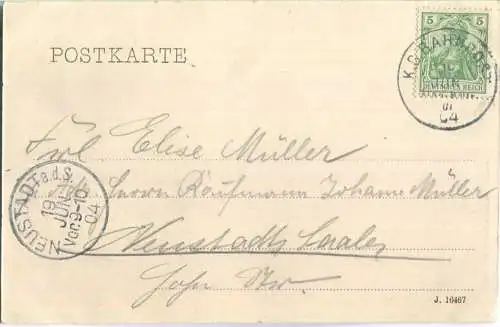 POSTKARTE
5 5
DEUTSCHES REICH
K.G. BAHNPOST
04
Frl Elise Müller
Adr. Herrn Kaufmann Johann Müller
NEUSTADT a.d.S.
19
JUN
Vor. 9-10
04
Neustadt Saale,
J. 16467